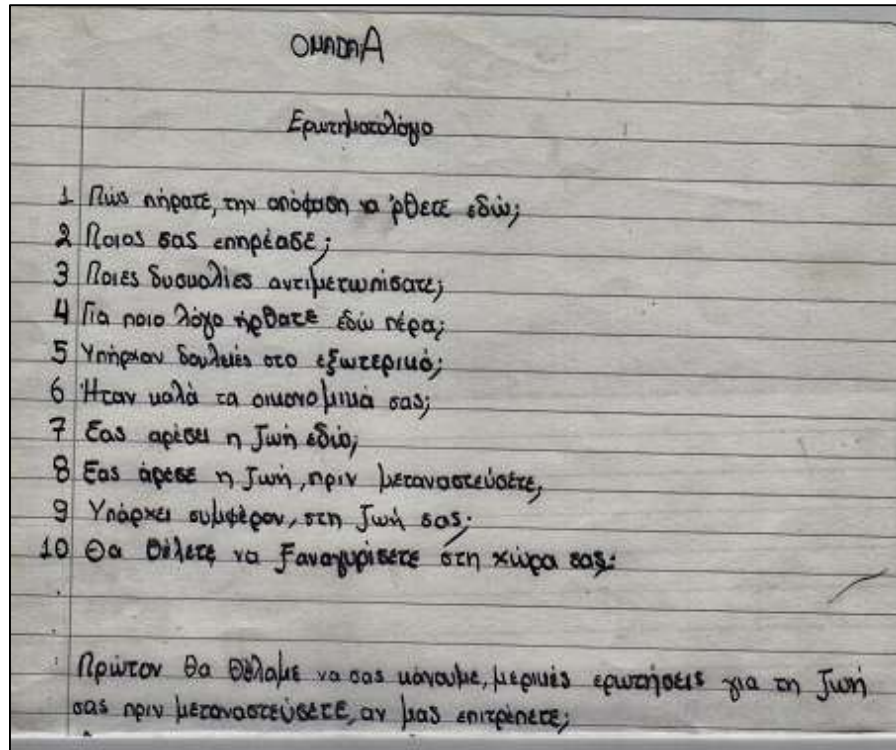 ΟΜΑΔΑ Α
Ερωτηματολόγιο
1 Πώς πήρατε, την απόφαση να 'ρθετε εδώ;
2 Ποιος σας επηρέασε;
3 Ποιες δυσκολίες αντιμετωπίσατε;
4 Για ποιο λόγο ήρθατε εδώ πέρα;
5 Υπήρχαν δουλειές στο εξωτερικό;
6 Ήταν καλά τα οικονομικά σας;
7 Σας αρέσει η ζωή εδώ;
8 Σας άρεσε η ζωή, πριν μεταναστεύσετε;
9 Υπάρχει συμφέρον, στη ζωή σας;
10 Θα θέλετε να ξαναγυρίσετε στη χώρα σας;
Πρώτον θα θέλαμε να σας κάνουμε, μερικές ερωτήσεις για τη ζωή
σας πριν μεταναστεύσετε, αν μας επιτρέπετε;